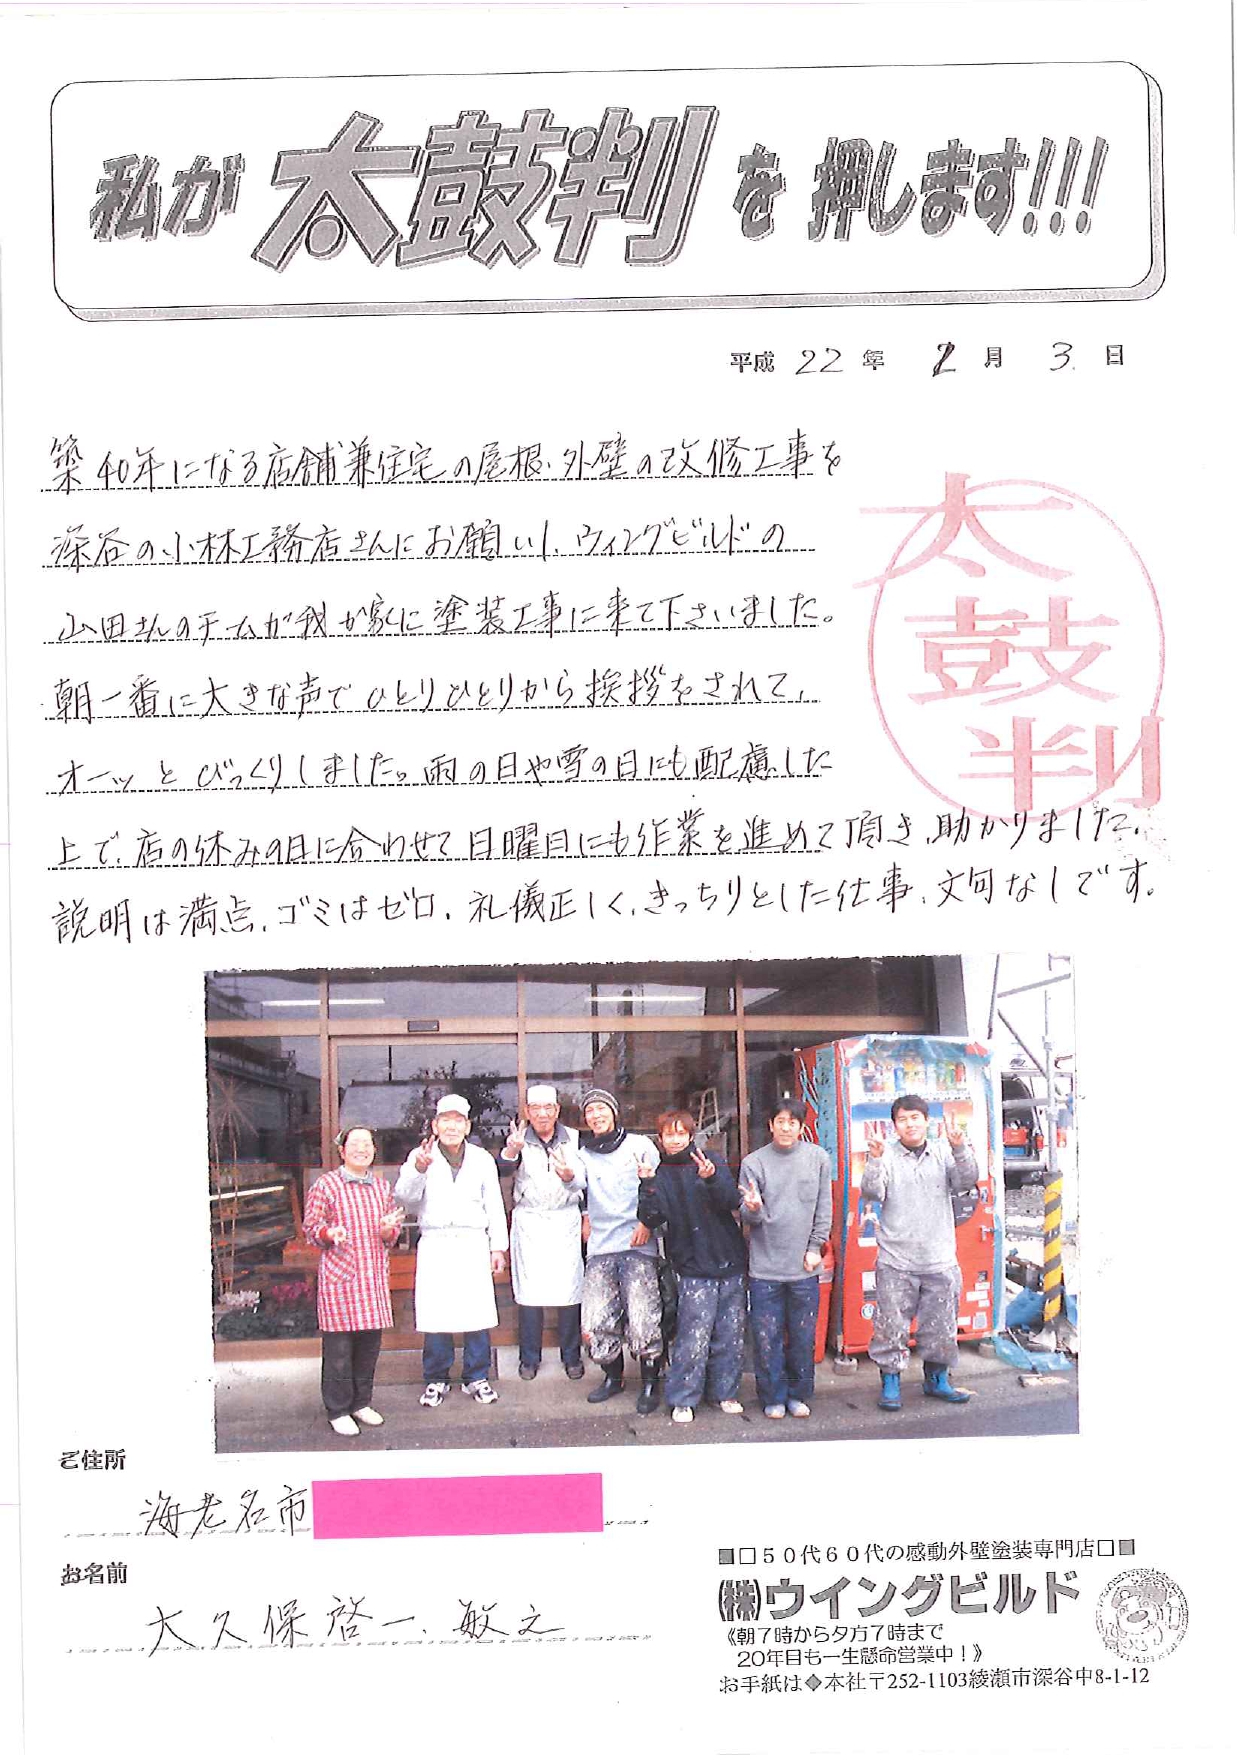 私が太鼓判を押します!!!
平成 22 年 2 月 3 日
築40年になる店舗兼住宅の屋根・外壁の改修工事を
深谷の小林工務店さんにお願いし、ウィングビルドの
山田さんのチームが我が家に塗装工事に来て下さいました。
朝一番に大きな声でひとりひとりから挨拶をされて、
オーッとびっくりしました。雨の日や雪の日にも配慮した
上で、店の休みの日に合わせて日曜日にも作業を進めて頂き、助かりました。
説明は満点、ゴミはゼロ、礼儀正しく、きっちりとした仕事、文句なしです。
太鼓判
ご住所
海老名市
お名前
大久保啓一、敏之
■□50代60代の感動外壁塗装専門店□■
㈱ウイングビルド
《朝7時から夕方7時まで
20年目も一生懸命営業中！》
お手紙は◆本社〒252-1103綾瀬市深谷中8-1-12